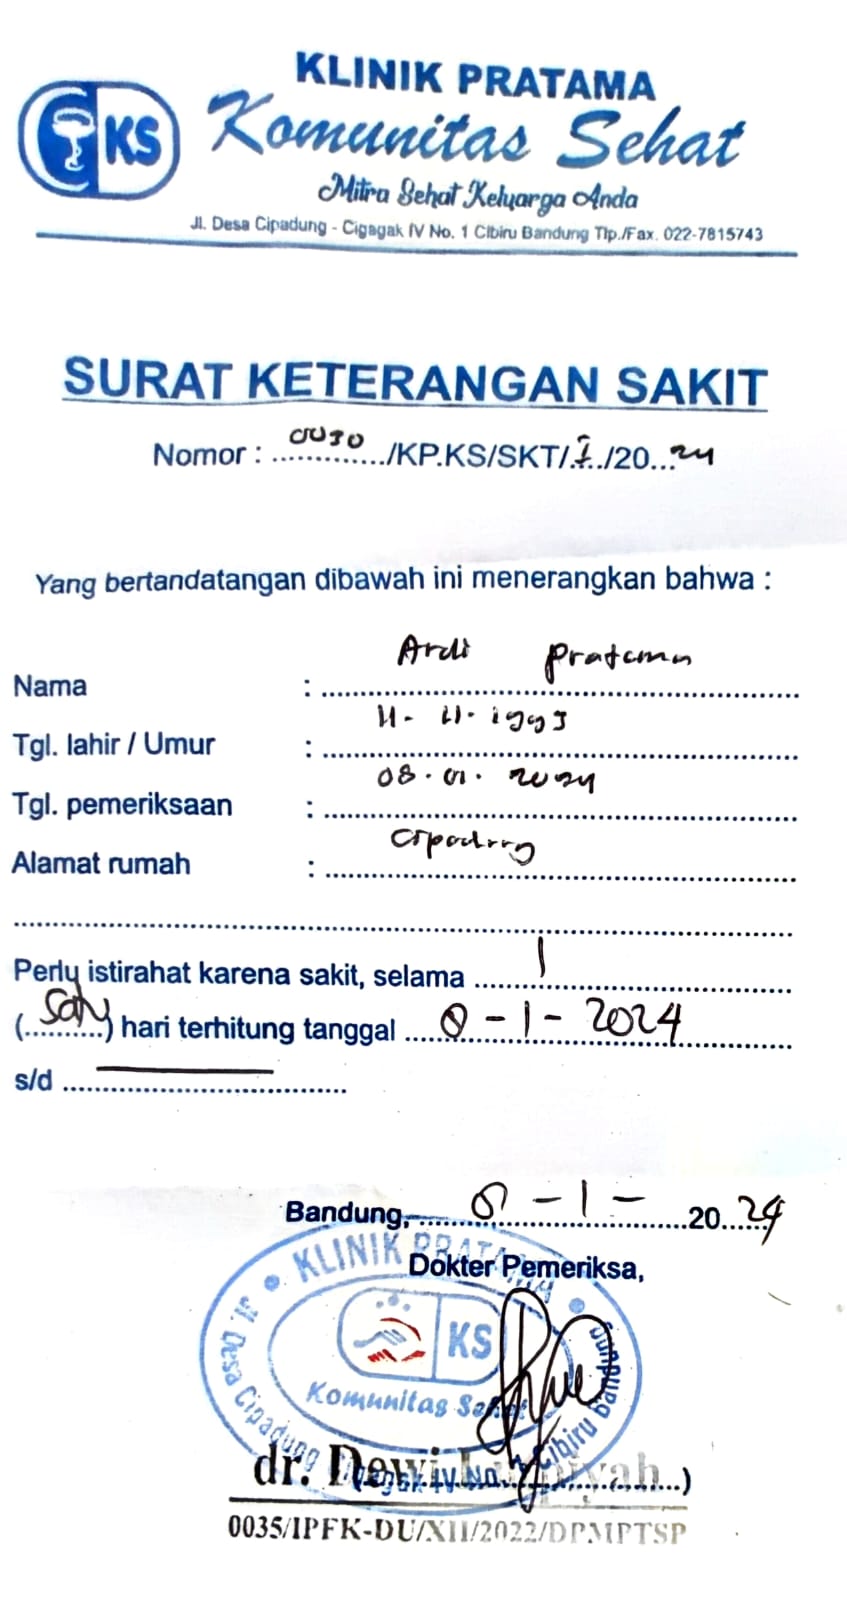 KS
KLINIK PRATAMA
Komunitas Sehat
Mitra Sehat Keluarga Anda
Jl. Desa Cipadung - Cigagak IV No. 1 Cibiru Bandung Tlp./Fax. 022-7815743
SURAT KETERANGAN SAKIT
Nomor : 0030 /KP.KS/SKT/ I /20 24
Yang bertandatangan dibawah ini menerangkan bahwa :
Nama : Ardi Pratama
Tgl. lahir / Umur : 11-11-1993
Tgl. pemeriksaan : 08.01.2024
Alamat rumah : Cipadung
Perlu istirahat karena sakit, selama 1
(Satu) hari terhitung tanggal 8-1-2024
s/d
Bandung, 8-1- 2024
Dokter Pemeriksa,
KLINIK PRATAMA
KS
Komunitas Sehat
Jl. Desa Cipadung Cigagak IV No. Cibiru Bandung
dr. Dewi )
0035/IPFK-DU/XII/2022/DPMPTSP